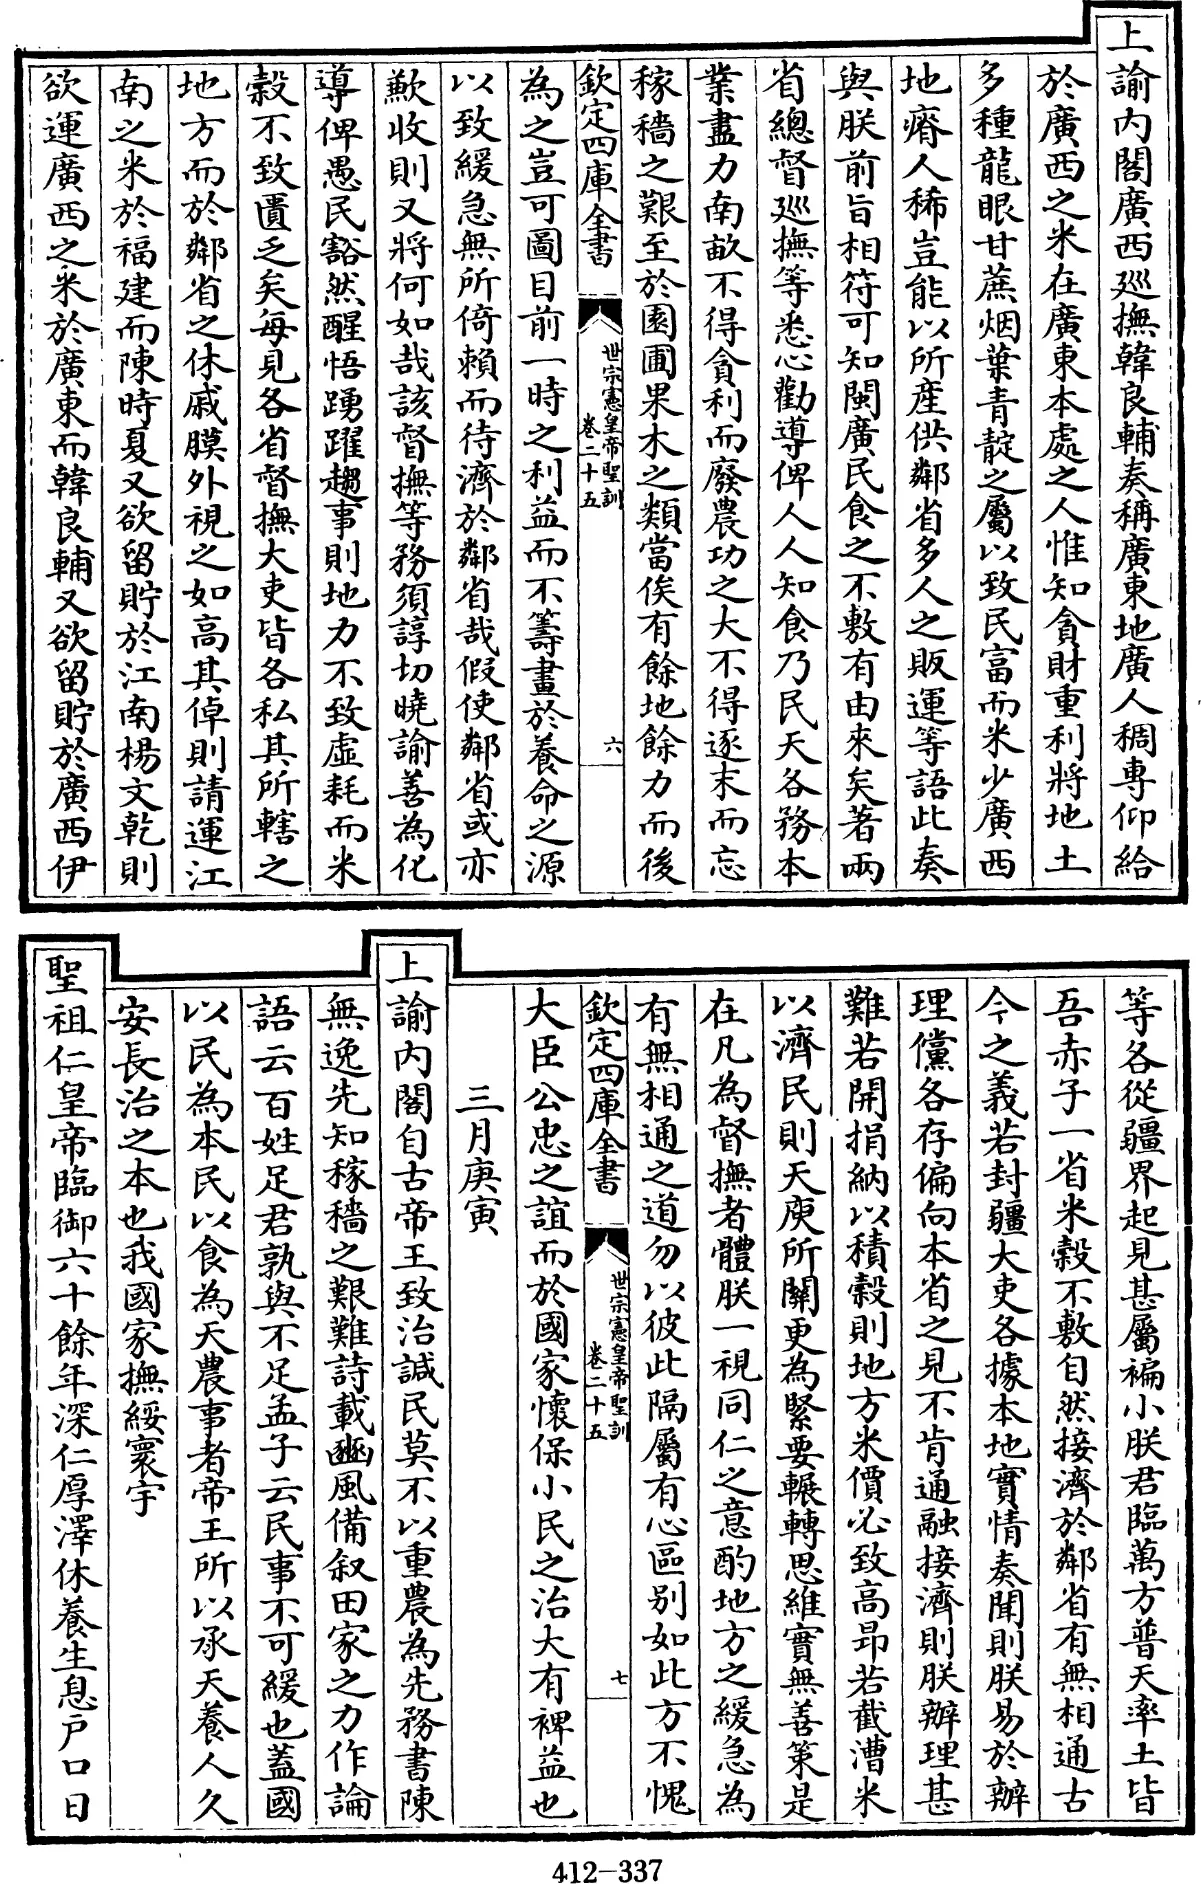 上諭内閣廣西廵撫韓良輔奏稱廣東地廣人稠專仰給
於廣西之米在廣東本處之人惟知貪財重利將地土
多種龍眼甘蔗烟葉青靛之屬以致民富而米少廣西
地瘠人稀豈能以所產供鄰省多人之販運等語此奏
與朕前旨相符可知閩廣民食之不敷有由來矣著兩
省總督廵撫等悉心勸導俾人人知食乃民天各務本
業盡力南畝不得貪利而廢農功之大不得逐末而忘
稼穡之艱至於園圃果木之類當俟有餘地餘力而後
欽定四庫全書
世宗憲皇帝聖訓
卷二十五
六
為之豈可圖目前一時之利益而不籌畫於養命之源
以致緩急無所倚賴而待濟於鄰省哉假使鄰省或亦
歉收則又將何如哉該督撫等務須諄切曉諭善為化
導俾愚民豁然醒悟踴躍趨事則地力不致虛耗而米
穀不致匱乏矣每見各省督撫大吏皆各私其所轄之
地方而於鄰省之休戚膜外視之如高其倬則請運江
南之米於福建而陳時夏又欲留貯於江南楊文乾則
欲運廣西之米於廣東而韓良輔又欲留貯於廣西伊
等各從疆界起見甚屬褊小朕君臨萬方普天率土皆
吾赤子一省米穀不敷自然接濟於鄰省有無相通古
今之義若封疆大吏各據本地實情奏聞則朕易於辦
理儻各存偏向本省之見不肯通融接濟則朕辦理甚
難若開捐納以積穀則地方米價必致高昂若截漕米
以濟民則天庾所關更為緊要輾轉思維實無善策是
在凡為督撫者體朕一視同仁之意酌地方之緩急為
有無相通之道勿以彼此隔屬有心區别如此方不愧
欽定四庫全書
世宗憲皇帝聖訓
卷二十五
七
大臣公忠之誼而於國家懷保小民之治大有裨益也
三月庚寅
上諭内閣自古帝王致治諴民莫不以重農為先務書陳
無逸先知稼穡之艱難詩載豳風備叙田家之力作論
語云百姓足君孰與不足孟子云民事不可緩也蓋國
以民為本民以食為天農事者帝王所以承天養人久
安長治之本也我國家撫綏寰宇
聖祖仁皇帝臨御六十餘年深仁厚澤休養生息户口日
412-337